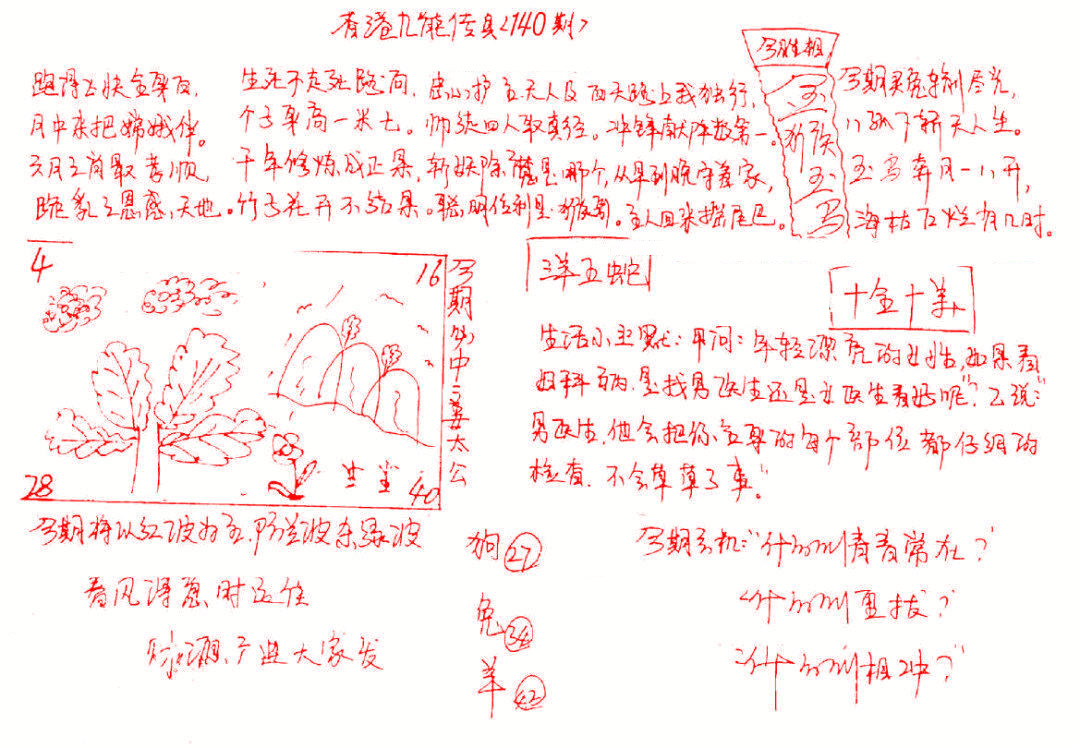 香港九龍传真<140期>
今期生肖相
玉
猴
玉
马
跑得飞快全身白,
月中来把嫦娥伴。
三月三前最孝顺,
跪乳之恩感天地。
生死不走死路向,
个子身高一米七。
千年修炼成正果,
竹子花开不结果。
忠心护主夫人及
师徒四人取真经。
斩妖除魔是哪个,
聪明伶俐是猴哥。
西天路上我独行,
冲锋献阵数第一。
从早到晚守着家,
主人回来摇尾巴。
今期灵兔
玉马奔月一八开,
海枯石烂有几时。
4
16
28
40
今期分中一姜太公
三羊五蛇
十金十羊
生活小幽默:甲问:年轻漂亮的女性,如果看
妇科病,是找男医生还是女医生看好呢"?乙说:"
男医生,他会把你全身的每个部位都仔细的
检查.不会草草了事。"
今期将以红波为主,防兰波杀绿波
春风得意时运佳
大家发
狗27
兔34
羊42
今期玄机:"什么叫青春常在?
什么叫直拔?
什么叫相冲?"